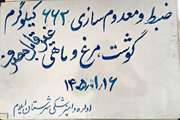 ضبط و معدوم سازی ۶۶۲ کیلوگرم
گوشت، مرغ و ماهی غیر قابل مصرف
۱۴۰۵/۰۱/۱۶
اداره دامپزشکی شهرستان